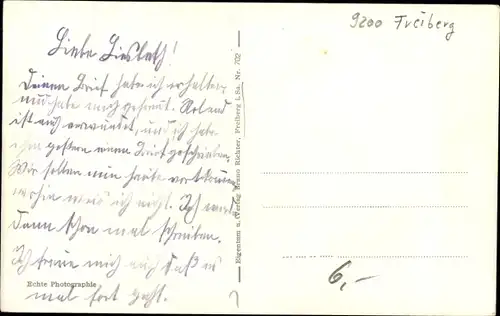 9200 Freiberg
Liebe Liesbeth!
Deinen Brief habe ich erhalten,
und habe mich gefreut. Roland
ist auch verwundet, und ich habe
ihm gestern einen Brief geschrieben.
Wir sollen nun heute fortkommen
wohin weiß ich nicht. Ich werde
dann schon mal schreiben.
Ich freue mich auch daß es
mal fort geht.
Echte Photographie
Eigentum u. Verlag Bruno Richter, Freiberg i. Sa. Nr. 702
6,-